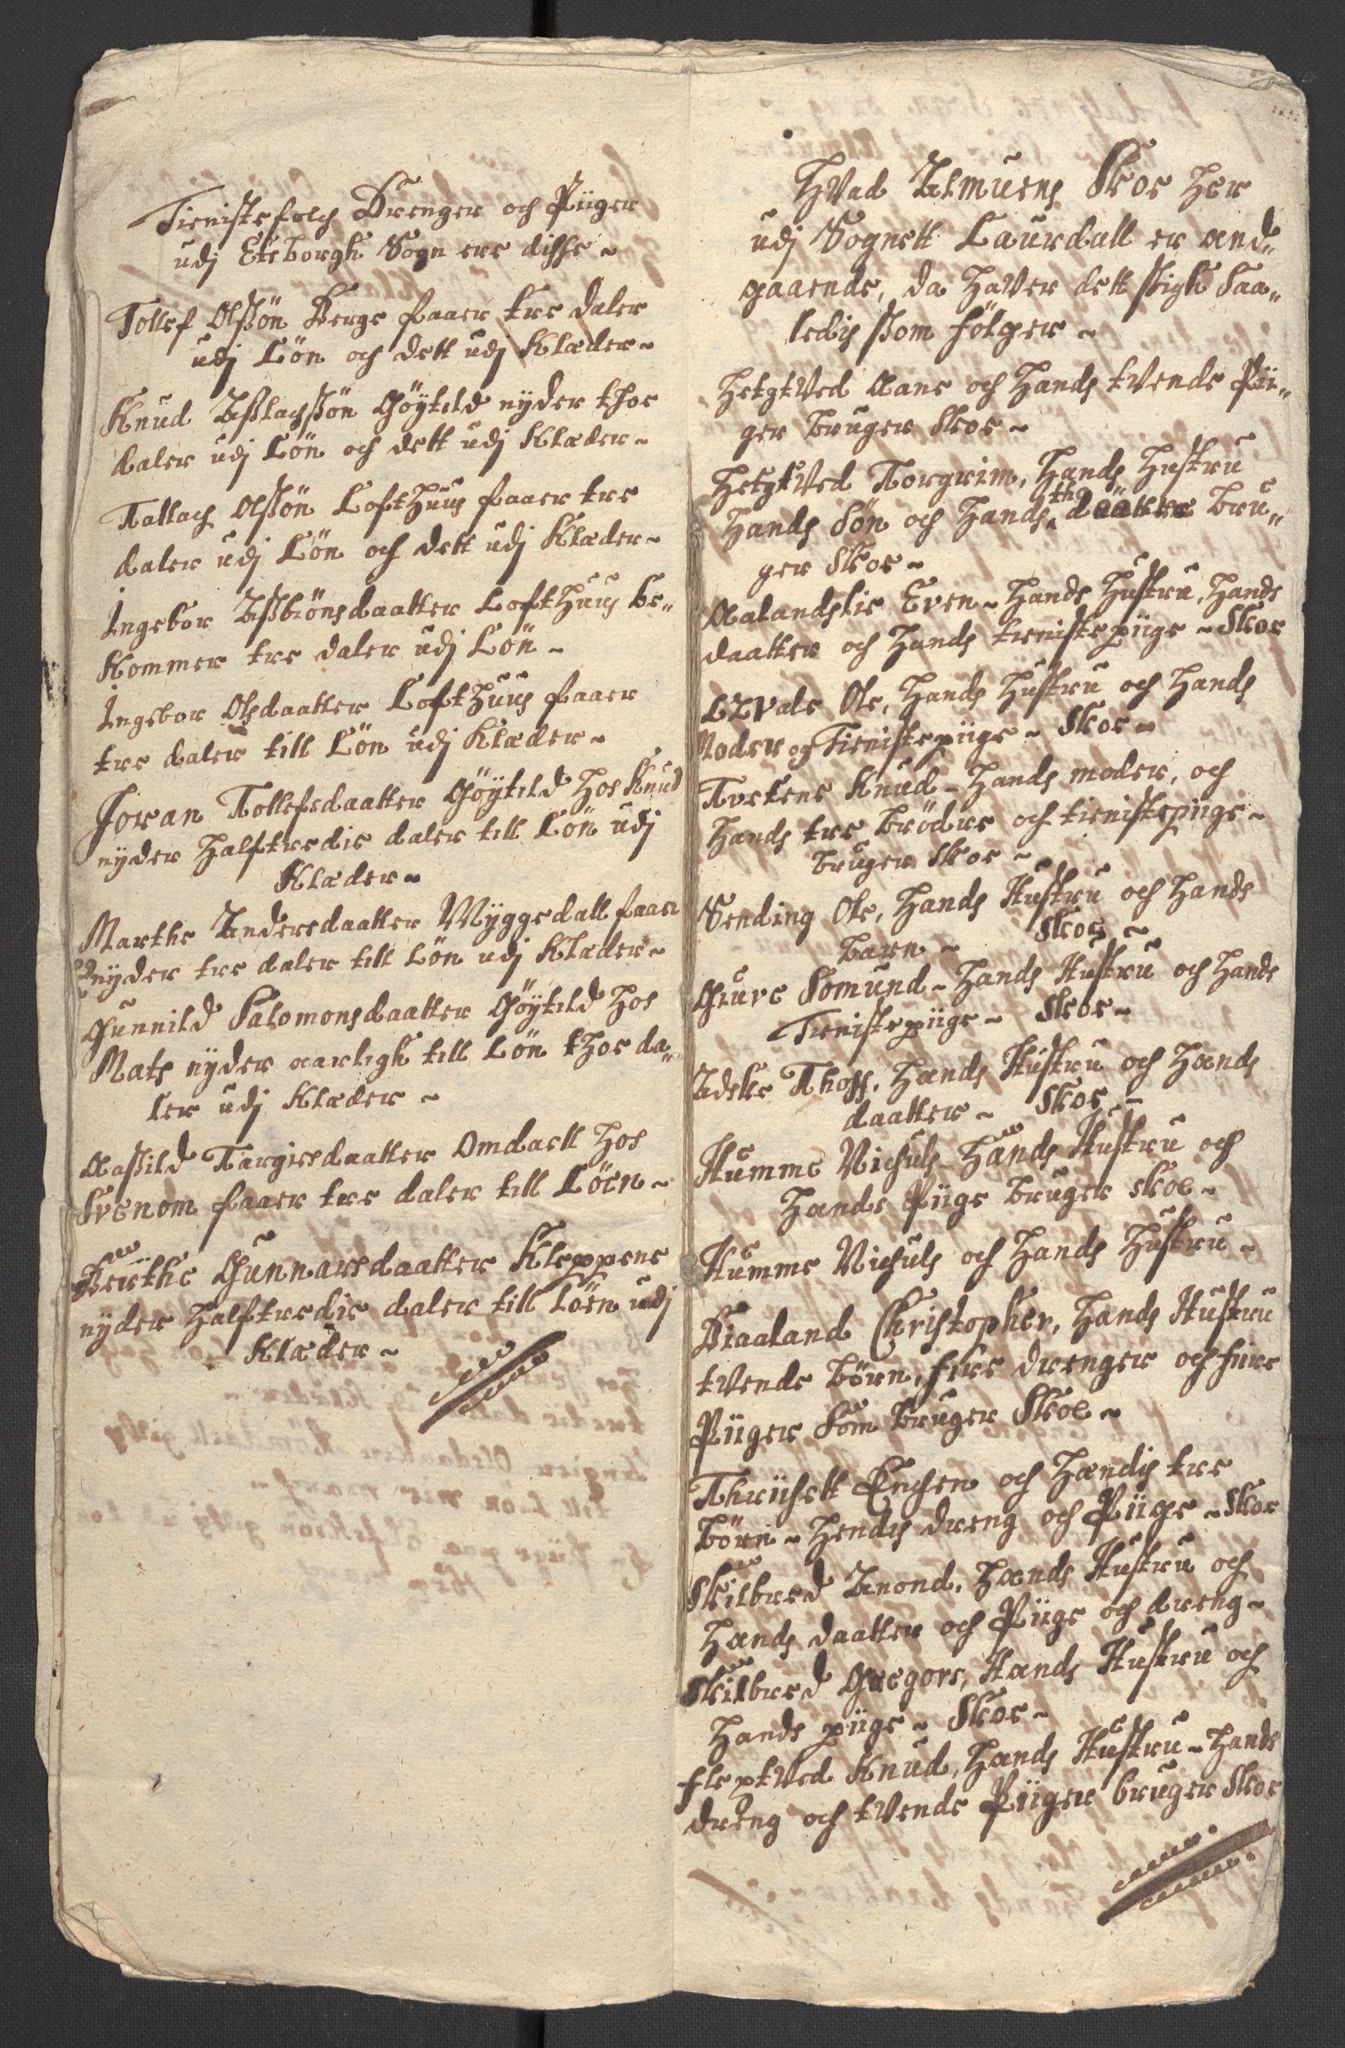 Tienistefolch Drenger och Piiger
udj Eteborgh Sogn ere disse ~
Tollef Olssøn Berge faaer tre daler
udj Løn och dett udj Klæder ~
Knud Asslachssøn Gøytild nyder thoe
daler udj Løn och dett udj Klæder ~
Tallach Olssøn Lofthuus faaer tre
daler udj Løn och dett udj Klæder ~
Ingebor Assbiønsdaatter Lofthuus be-
kommer tre daler udj Løn ~
Ingebor Olsdaatter Lofthuus faaer
tre daler till Løn udj Klæder ~
Joran Tollefsdaatter Gøytild hos Knud
nyder halftredie daler till Løn udj
Klæder ~
Marthe Andersdaatter Myggedall faaer
nyder tre daler till Løn udj Klæder ~
Gunnild Salomonsdaatter Gøytild hos
Mats nyder aarligh till Løn thoe da-
ler udj Klæder ~
Aassild Targiersdaatter Omdaell hos
Svenom faaer tre daler till Løen ~
Berthe Gunnarsdaatter Kleppene
nyder halftredie daler till Løen udj
Klæder ~
Hvad Almuens Skoe her
udj Sognett Laurdall er and-
gaaende, da haver dett ssigh saa-
ledis ssom følger ~
Hetgtved Aane och hands tvende Pii-
ger bruger Skoe ~
Hetgtved Torgrim, hands hustru
hands Søn och hands tho daatter bru-
ger Skoe ~
Aalandslie Even ~ hands hustru, hands
daatter och hands tienistepiige ~ Skoe
Lzvale Ole, hands hustru och hands
Moder og Tienistepiige ~ Skoe ~
Tvetene Knud ~ hands moder, och
hands tre brødre och tienistepiige ~
bruger Skoe ~
Sending Ole, hands Hustru och hands
barn ~ Skoe ~
Giuve Somund ~ hands Hustru och hands
Tienistepiige ~ Skoe ~
Adske Thoff, hands Hustru och hands
daatter ~ Skoe ~
Humme Nichuls hands Hustru och
hands Piige bruger skoe ~
Humme Nichuls och hands hustru ~
Biaaland Christopher, hands Hustru
tvende børn, fire drenger och fiire
Piiger som bruger Skoe ~
Thriisett Enchen och hendis tre
børn ~ hendis dreng och Piige ~ Skoe
Skilbred Anond, hands Hustru och
hands daatter och Piige och dreng ~
Skilbred Gregors, hands Hustru och
hands piige ~ Skoe ~
Fleptved Knud, hands Hustru ~ hands
dreng och tvende Piiger bruger Skoe